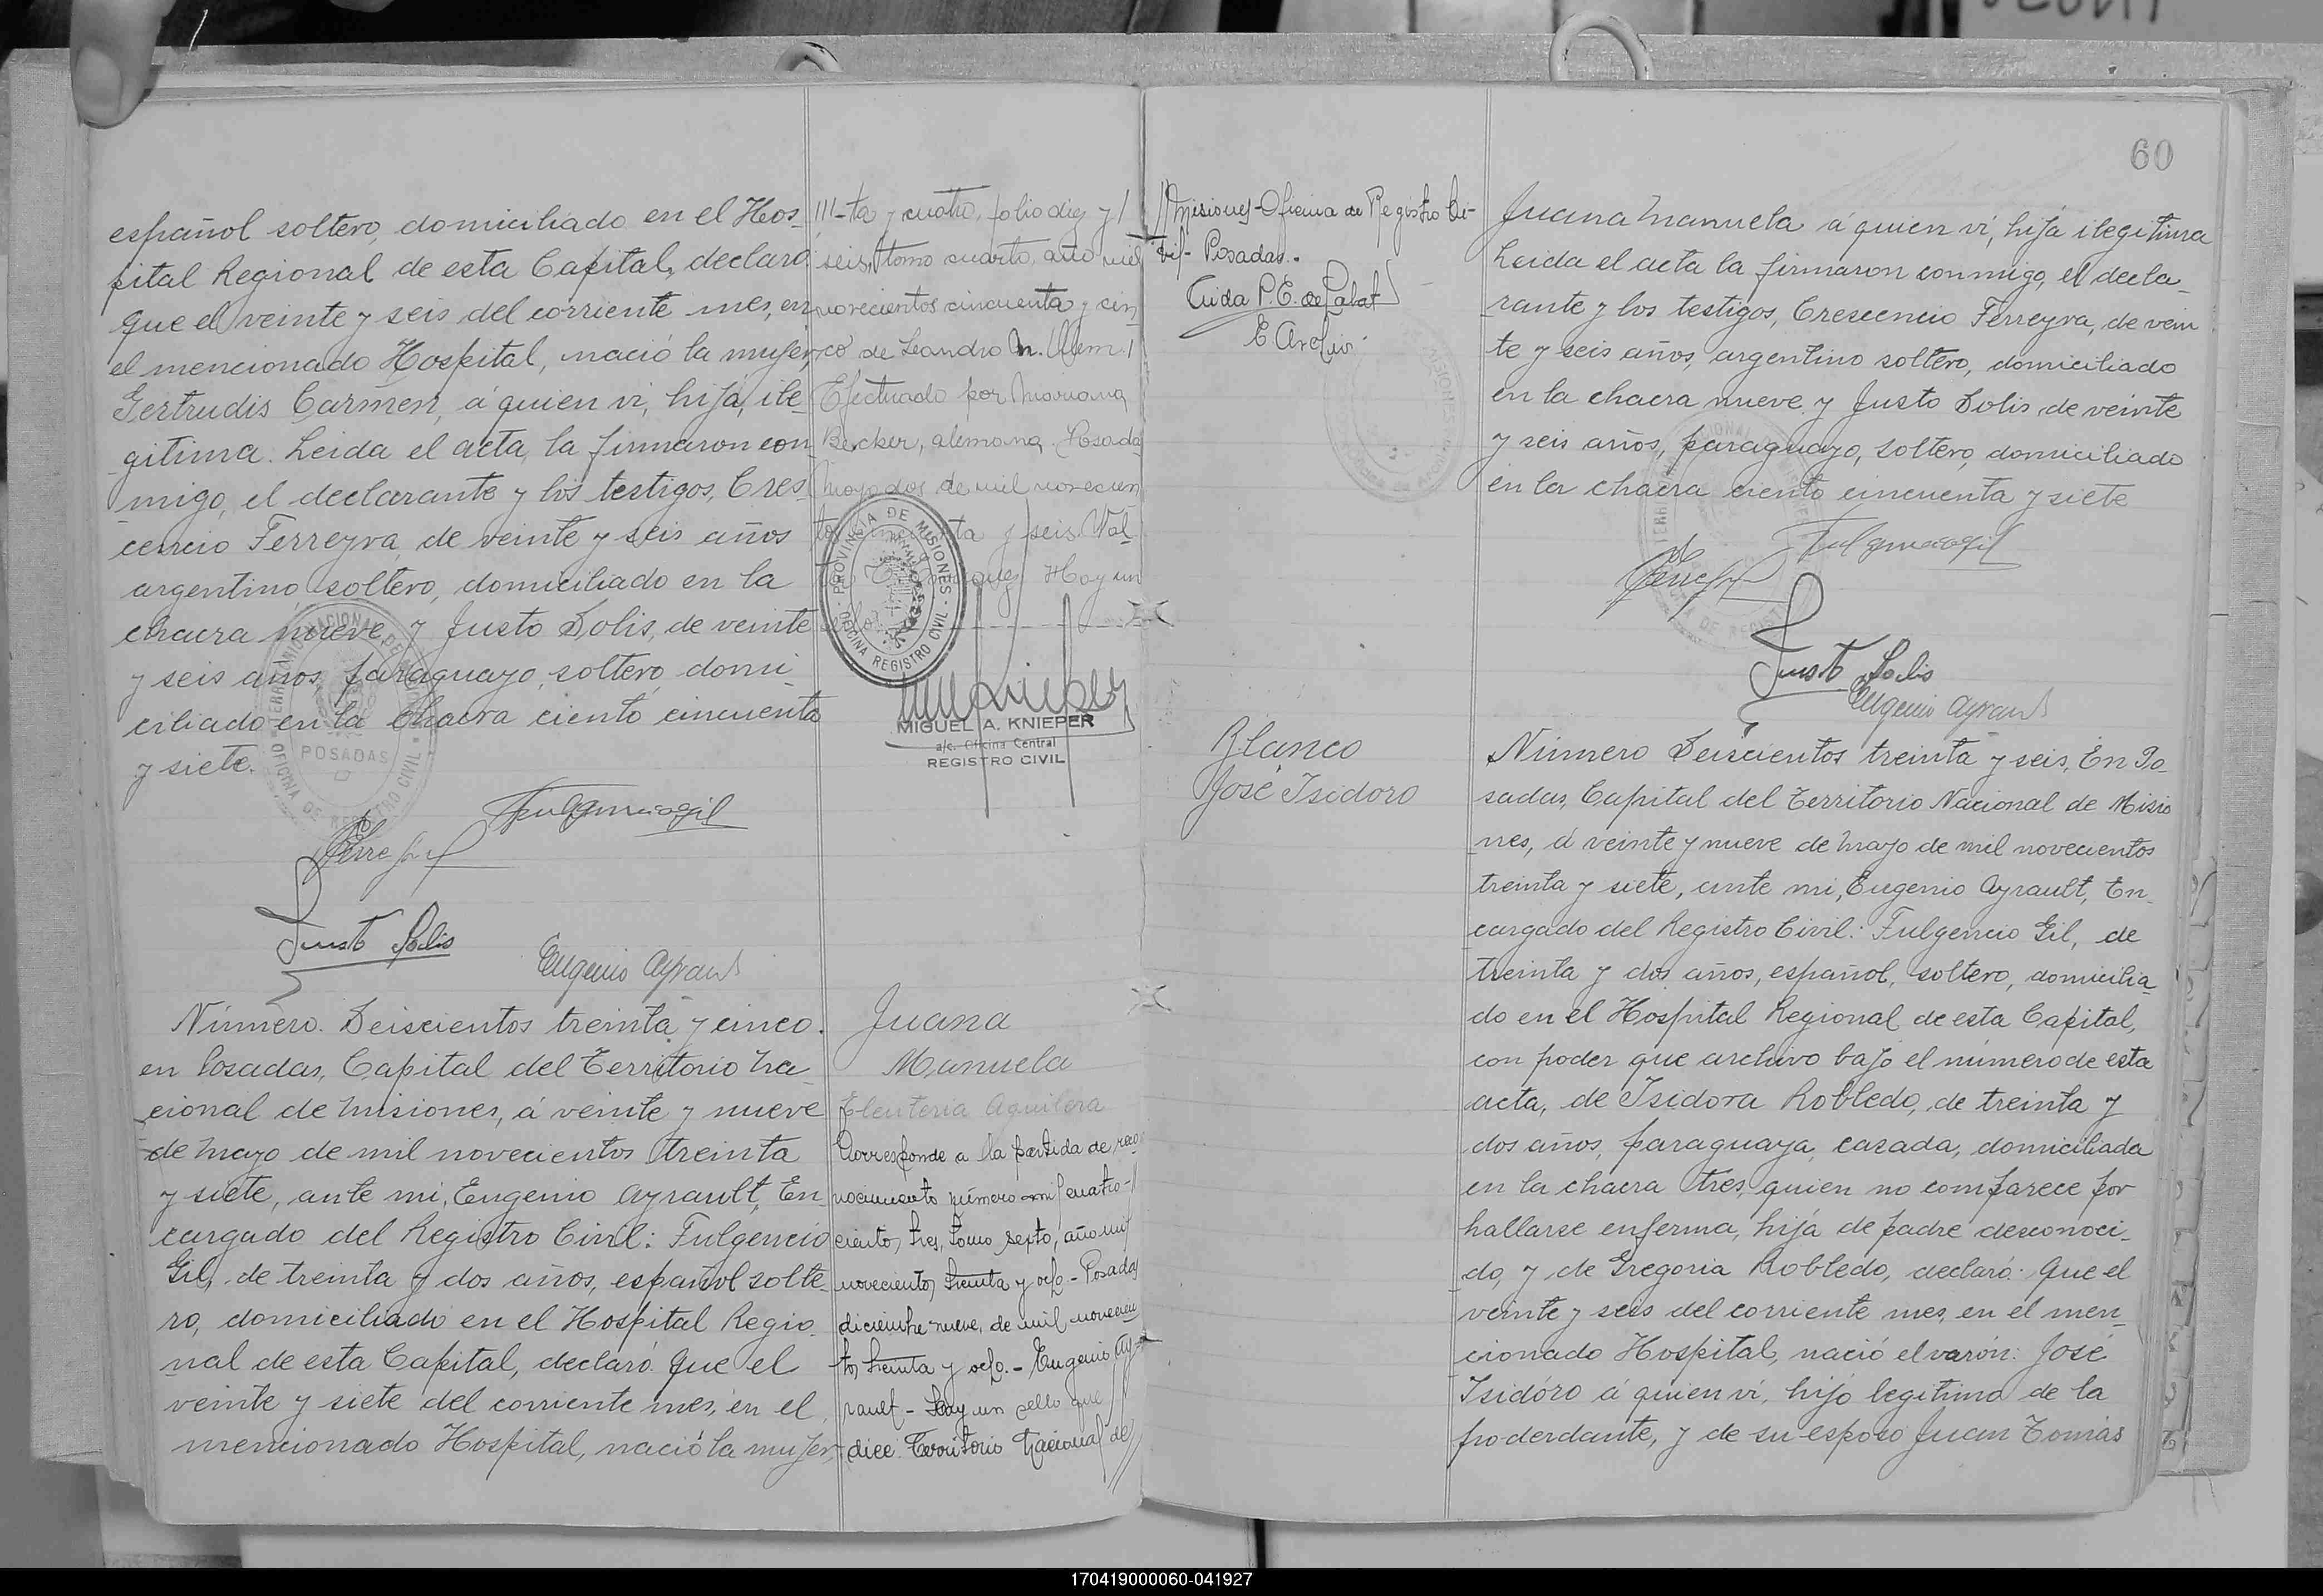 español soltero, domiciliado en el Hos-
pital Regional de esta Capital, declaró
que el veinte y seis del corriente mes, en
el mencionado Hospital, nació la mujer,
Gertrudis Carmen, á quien vi, hija, ile-
gitima. Leida el acta, la firmaron con
migo, el declarante y los testigos, Cres-
cencio Ferreyva, de veinte y seis años
argentino, soltero, domiciliado en la
chacra nueve, y Justo Solis, de veinte
y seis años, paraguayo, soltero, domi-
ciliado en la chacra ciento cincuenta
y siete.
Justo Solis
Eugenio Ayrault
Número. Seiscientos treinta y cinco.
en Posadas, Capital del Territorio Na-
cional de Misiones, á veinte y nueve
de Mayo de mil novecientos treinta
y siete, ante mi, Eugenio Ayrault, En
cargado del Registro Civil: Fulgencio
Gil, de treinta y dos años, español solte-
ro, domiciliado en el Hospital Regio-
nal de esta Capital, declaró: Que el
veinte y siete del corriente mes, en el
mencionado Hospital, nació la mujer,
///-ta y cuatro, folio diez y/
seis, tomo cuarto, año mil
novecientos cincuenta y cin-
co de Leandro N. Alem./
Efectuado por Mariana
Becker, alemana. Posadas
Mayo dos de mil novecien
seis. Wal-
Hay un
PROVINCIA DE MISIONES
OFICINA REGISTRO CIVIL
MIGUEL A. KNIEPER
a/c. Oficina Central
REGISTRO CIVIL
Juana
Manuela
Eleuteria Aguilera
Corresponde a la partida de reco-
nocimiento número mil cuatro-
cientos tres, tomo sexto, año mil
novecientos treinta y ocho - Posadas
diciembre nueve, de mil novecien
tos treinta y ocho. - Eugenio Ay-
rault - Hay un sello que
dice: Territorio Nacional de//
//Misiones - Oficina de Registro Ci-
vil - Posadas.-
E. Archiv.
60
Juana Manuela á quien vi, hija ilegitima
Leida el acta la firmaron conmigo, el decla-
rante y los testigos, Crescencio Ferreyva, de vein
te y seis años, argentino soltero, domiciliado
en la chacra nueve, y Justo Solis, de veinte
y seis años, paraguayo, soltero, domiciliado
en la chacra ciento cincuenta y siete
Justo Solis
Eugenio Ayrault
Blanco
José Isidoro
Número Seiscientos treinta y seis, En Po-
sadas, Capital del Territorio Nacional de Misio
nes, á veinte y nueve de Mayo de mil novecientos
treinta y siete, ante mi, Eugenio Ayrault, En-
cargado del Registro Civil: Fulgencio Gil, de
treinta y dos años, español, soltero, domicilia-
do en el Hospital Regional de esta Capital,
con poder que archivo bajo el número de esta
acta, de Isidora Robledo, de treinta y
dos años, paraguaya, casada, domiciliada
en la chacra tres, quien no comparece por
hallarse enferma, hija de padre desconoci-
do, y de Gregoria Robledo, declaró: Que el
veinte y seis del corriente mes, en el men-
cionado Hospital, nació el varón: José
Isidóro á quien vi, hijo legitimo de la
poderdante, y de su esposo Juan Tomás
170419000060-041927